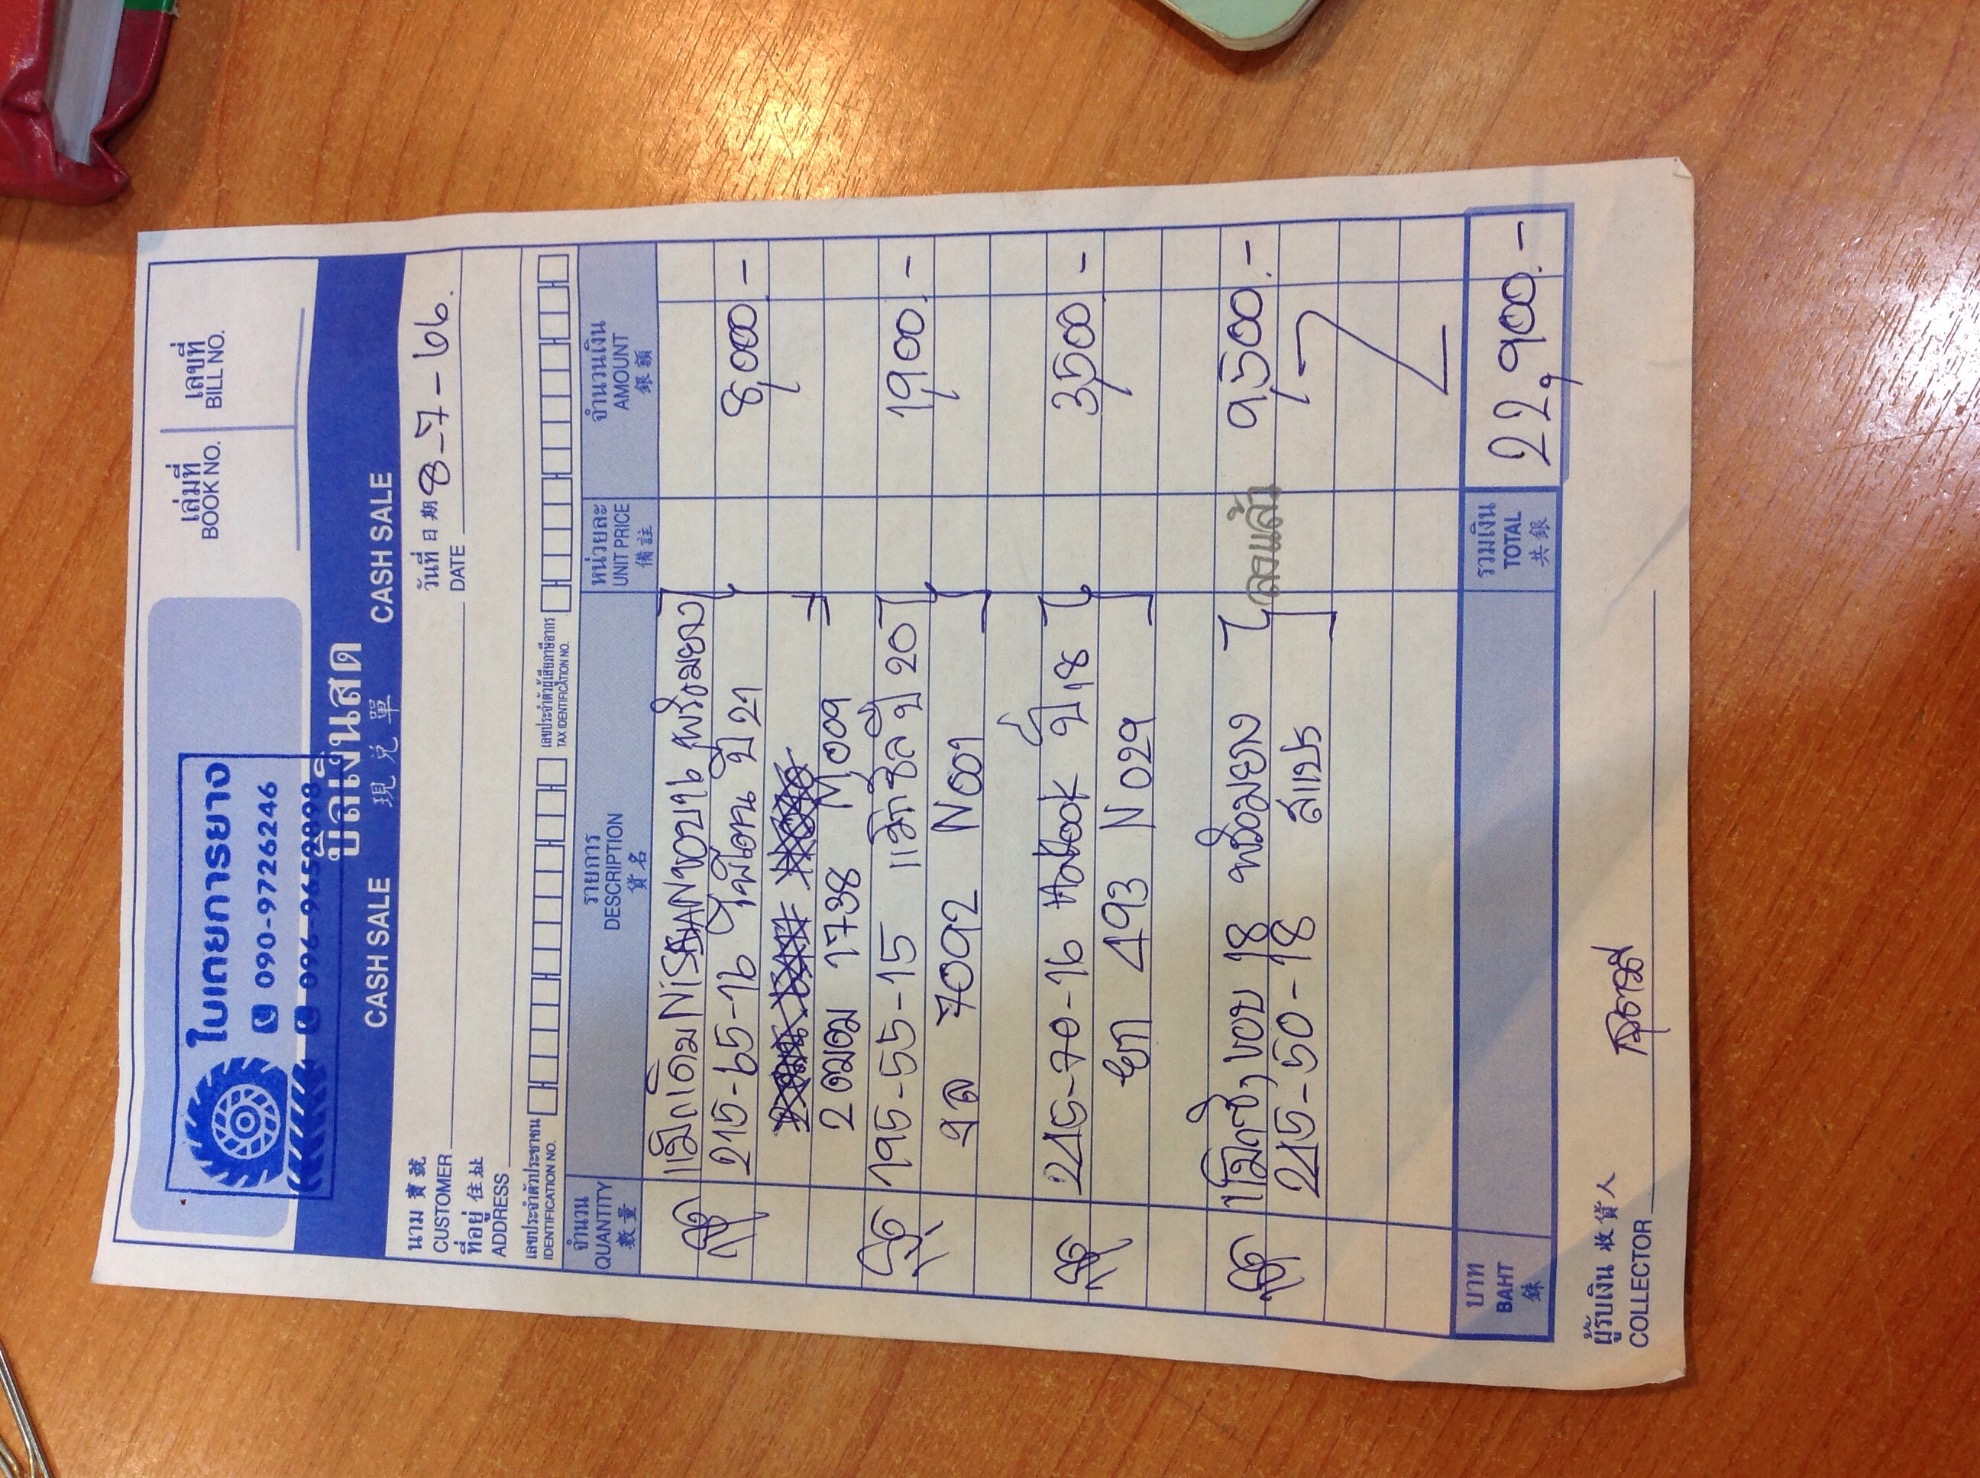 ใบเตยการยาง
090-9726246
096-9652898
เล่มที่ เลขที่
BOOK NO. BILL NO.
บิลเงินสด
CASH SALE 現兌單 CASH SALE
นาม 寶號
CUSTOMER
วันที่ 日期 8-7-66.
DATE
ที่อยู่ 住址
ADDRESS
เลขประจำตัวประชาชน
IDENTIFICATION NO.
เลขประจำตัวผู้เสียภาษีอากร
TAX IDENTIFICATION NO.
จำนวน รายการ หน่วยละ จำนวนเงิน
QUANTITY DESCRIPTION UNIT PRICE AMOUNT
數量 貨名 備註 銀額
แม็กเดิม NISSAN ขอบ16 พร้อมยาง
215-65-16 ปี 21 8,000.-
2ฒฒ 1738 M,009
195-55-15 แม็กซิส ปี 20 1,900.-
7092 N001
245-70-16 Hankook ปี 18 3,500.-
493 N029
แม็กซิ่ง ขอบ 18 พร้อมยาง ลงแล้ว 9,500.-
245-50-18
บาท รวมเงิน 22,900.-
BAHT TOTAL
銖 共銀
ผู้รับเงิน 收貨人
COLLECTOR